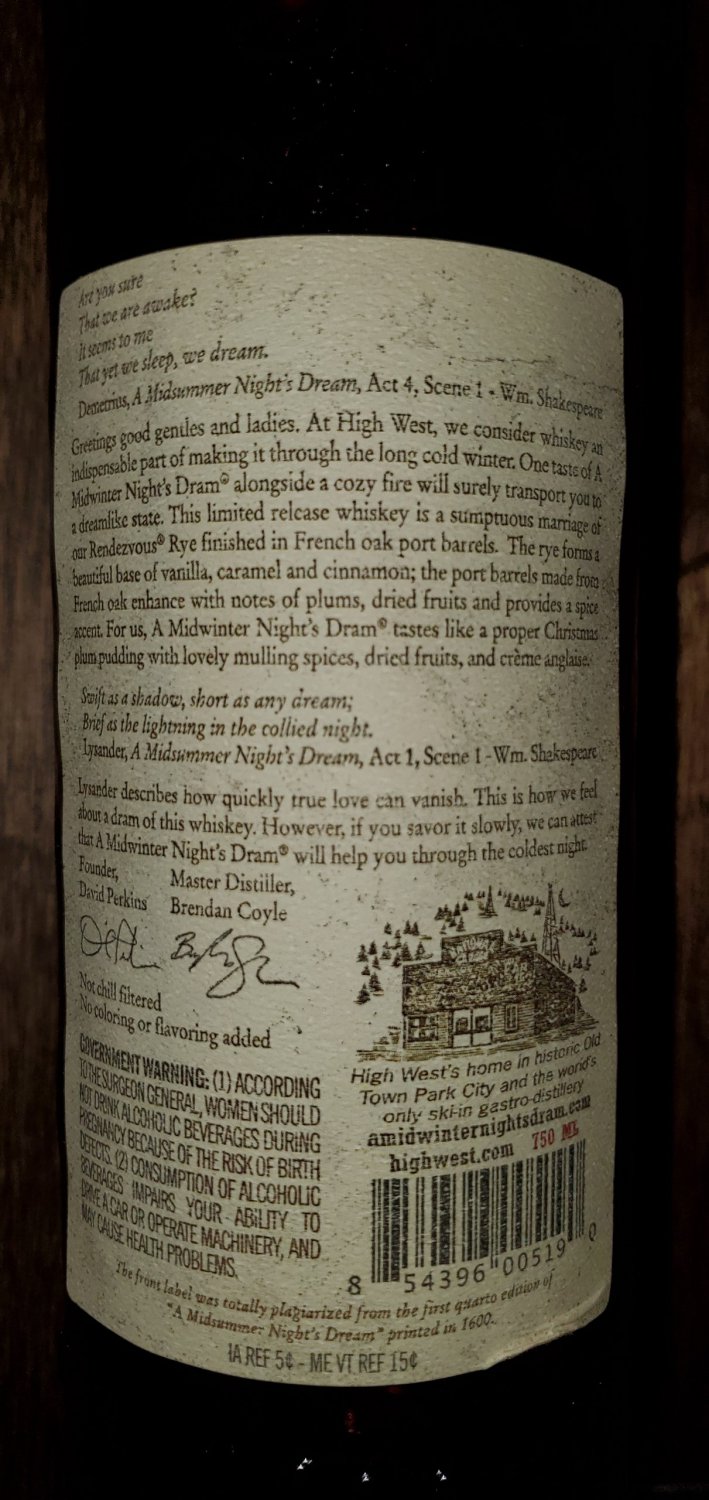 Are you sure
That we are awake?
It seems to me
That yet we sleep, we dream.
Demetrius, A Midsummer Night's Dream, Act 4, Scene 1 - Wm. Shakespeare
Greetings good gentles and ladies. At High West, we consider whiskey an
indispensable part of making it through the long cold winter. One taste of A
Midwinter Night's Dram® alongside a cozy fire will surely transport you to
a dreamlike state. This limited release whiskey is a sumptuous marriage of
our Rendezvous® Rye finished in French oak port barrels. The rye forms a
beautiful base of vanilla, caramel and cinnamon; the port barrels made from
French oak enhance with notes of plums, dried fruits and provides a spice
accent. For us, A Midwinter Night's Dram® tastes like a proper Christmas
plum pudding with lovely mulling spices, dried fruits, and crème anglaise.
Swift as a shadow, short as any dream;
Brief as the lightning in the collied night.
Lysander, A Midsummer Night's Dream, Act 1, Scene 1 - Wm. Shakespeare
Lysander describes how quickly true love can vanish. This is how we feel
about a dram of this whiskey. However, if you savor it slowly, we can attest
that A Midwinter Night's Dram® will help you through the coldest night.
Founder,
David Perkins
Master Distiller,
Brendan Coyle
Not chill filtered
No coloring or flavoring added
GOVERNMENT WARNING: (1) ACCORDING
TO THE SURGEON GENERAL, WOMEN SHOULD
NOT DRINK ALCOHOLIC BEVERAGES DURING
PREGNANCY BECAUSE OF THE RISK OF BIRTH
DEFECTS. (2) CONSUMPTION OF ALCOHOLIC
BEVERAGES IMPAIRS YOUR ABILITY TO
DRIVE A CAR OR OPERATE MACHINERY, AND
MAY CAUSE HEALTH PROBLEMS.
High West's home in historic Old
Town Park City and the world's
only ski-in gastro-distillery
amidwinternightsdram.com
highwest.com 750 ML
8 54396 00519 0
The front label was totally plagiarized from the first quarto edition of
"A Midsummer Night's Dream" printed in 1600.
IA REF 5¢ - ME VT REF 15¢